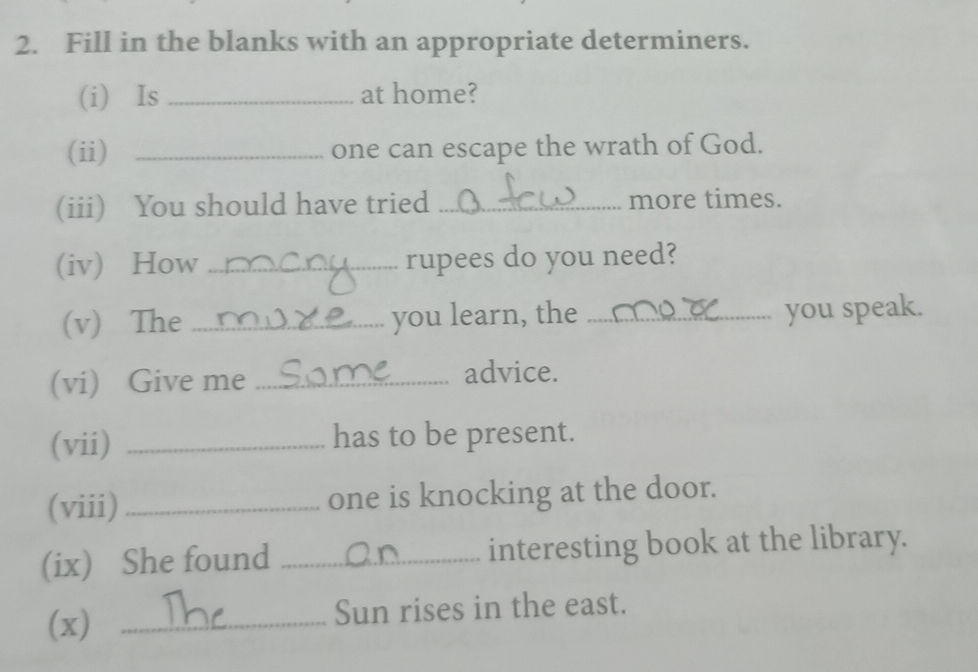 2. Fill in the blanks with an appropriate determiners.
(i) Is ............ at home?
(ii) ............ one can escape the wrath of God.
(iii) You should have tried a few more times.
(iv) How many rupees do you need?
(v) The more you learn, the more you speak.
(vi) Give me Some advice.
(vii) ............ has to be present.
(viii) ............ one is knocking at the door.
(ix) She found an interesting book at the library.
(x) The Sun rises in the east.